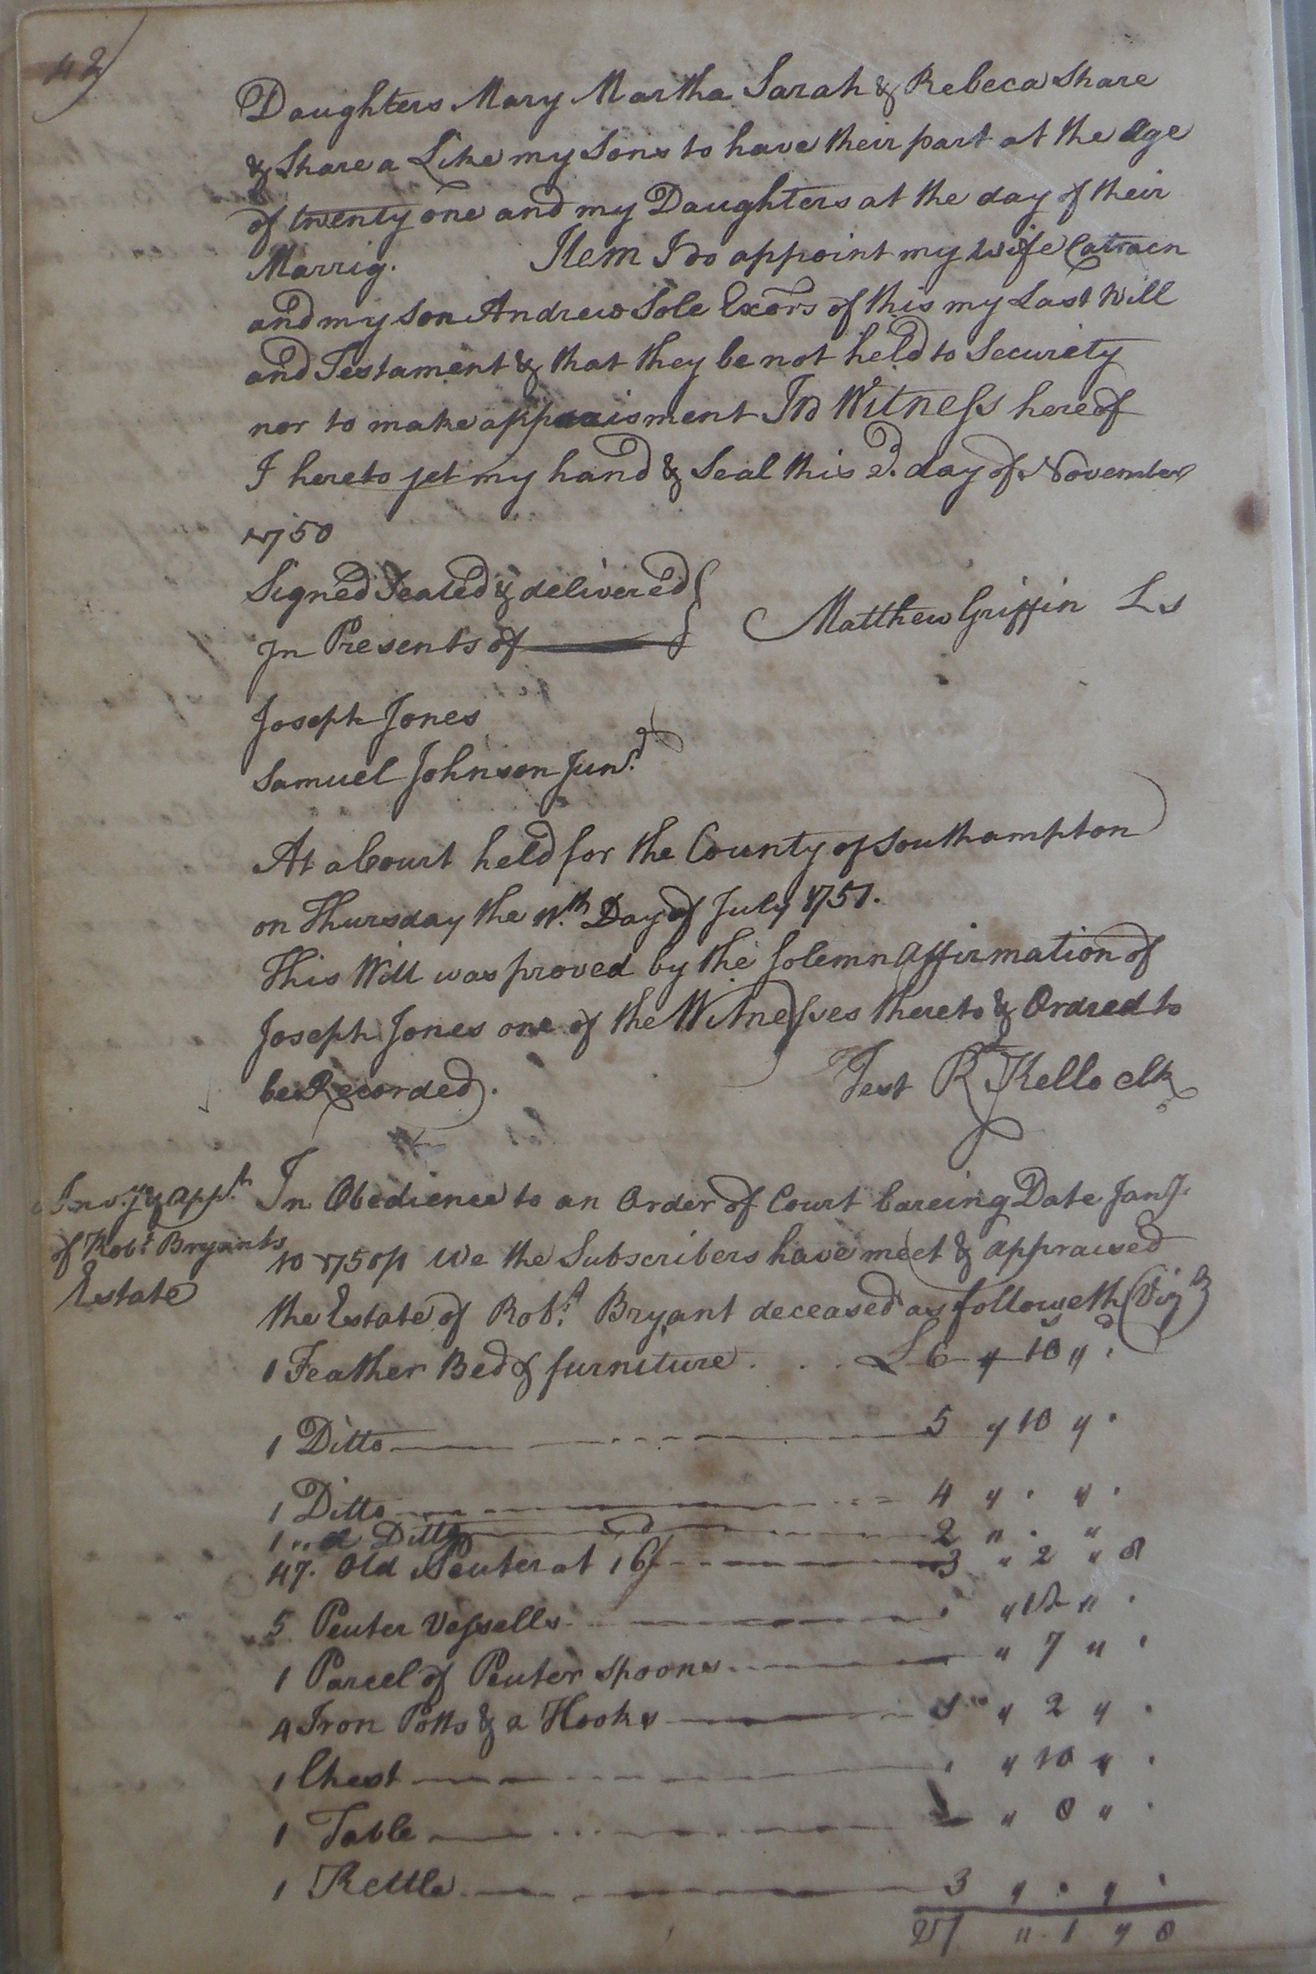 42
Daughters Mary Martha Sarah & Rebeca Share
& Share a Like my Sons to have their part at the age
of twenty one and my Daughters at the day of their
Marrig. Item I do appoint my wife Catraen
and my Son Andrew Sole Exors of this my Last Will
and Testament & that they be not held to Security
nor to make appraisment In Witness hereof
I hereto set my hand & Seal this 2d. day of November
1750
Signed Sealed & delivered
In Presents of
Matthew Griffin Ls
Joseph Jones
Samuel Johnson Junr.
At a Court held for the County of Southampton
on Thursday the 11.th Day of July 1751.
This Will was proved by the Solemn Affirmation of
Joseph Jones one of the Witnesses thereto & Ordred to
be Recorded.
Test Rd Kello clk
Invry & appt.
of Robt. Bryants
Estate
In Obedience to an Order of Court bareing Date Jany.
10 1750/1 We the Subscribers have meet & appraised
the Estate of Robt. Bryant deceased as followeth (Vizt)
1 Feather Bed & furniture . . . £ 6 " 10 " .
1 Ditto 5 " 10 " .
1 Ditto 4 " . " .
1 .. a Ditto 2 " . "
47. Old Peuter at 16/ 3 " 2 " 8
5 Peuter Vessells . " 12 " .
1 Parcel of Peuter Spoons " 7 " .
4 Iron Potts & a Hooks 1 " 2 " .
1 Chest . " 10 " .
1 Table " 8 " .
1 Kettle 3 " . " .
27 " 1 " 8